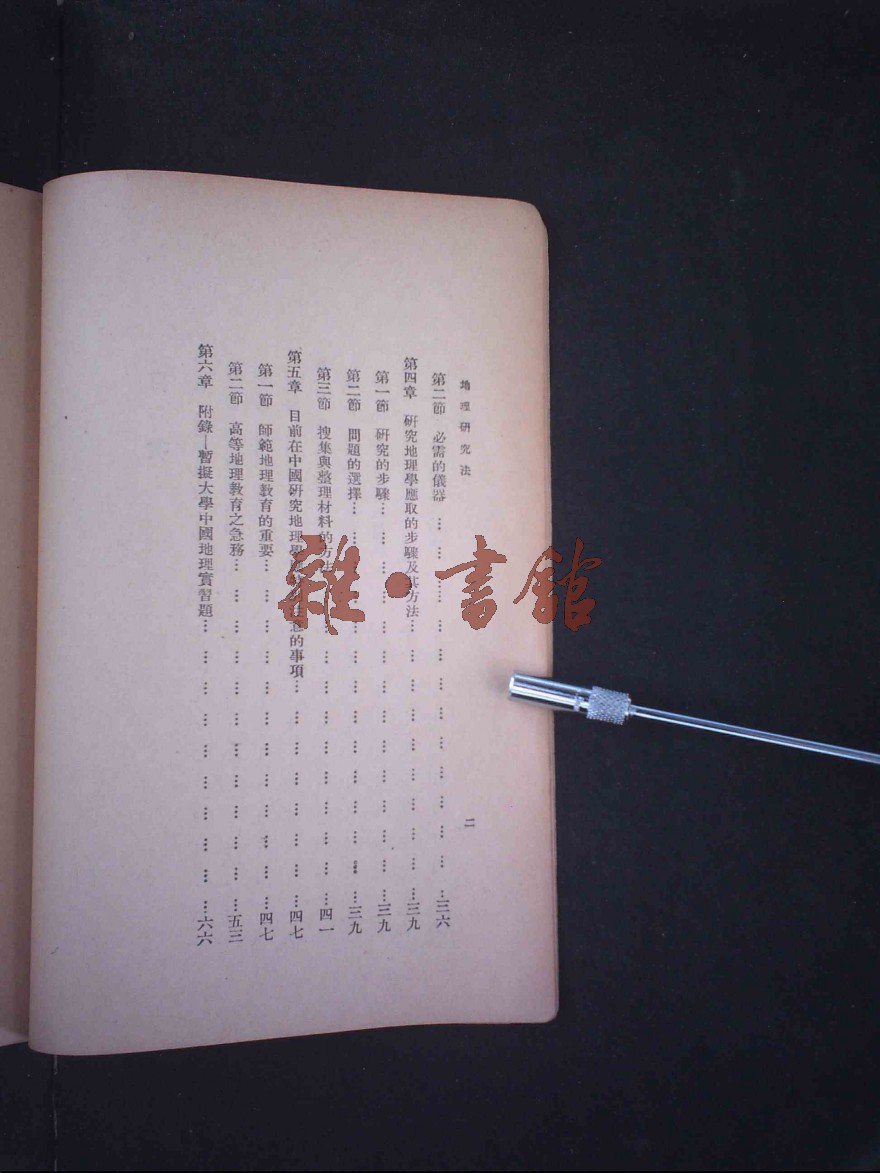 地理研究法
二
第二節 必需的儀器………三六
第四章 研究地理學應取的步驟及其方法………三九
第一節 研究的步驟………三九
第二節 問題的選擇………三九
第三節 搜集與整理材料的方法………四一
第五章 目前在中國研究地理學 的事項………四七
第一節 師範地理教育的重要………四七
第二節 高等地理教育之急務………五三
第六章 附錄—暫擬大學中國地理實習題………六六
雜·書館